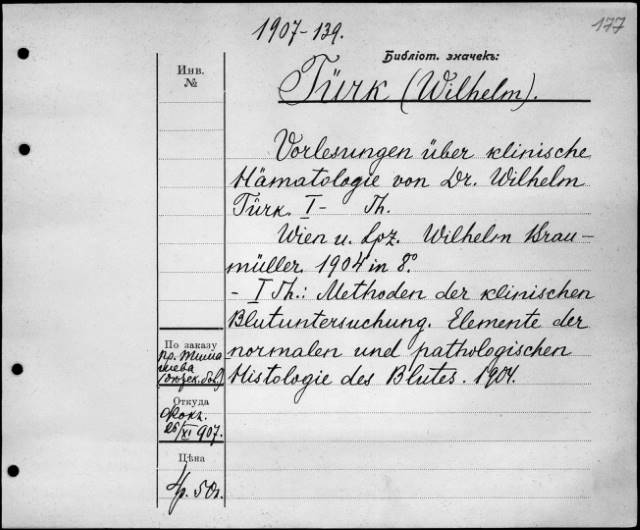 1907-139.
177
Библіот. значекъ:
Инв.
№
Türk (Wilhelm).
Vorlesungen über klinische
Hämatologie von Dr. Wilhelm
Türk. I- Th.
Wien u. Lpz. Wilhelm Brau-
müller. 1904 in 8°
- I Th.: Methoden der klinischen
Blutuntersuchung. Elemente der
normalen und pathologischen
Histologie des Blutes. 1904.
По заказу
пр.
Откуда
26/XI 907.
Цѣна
4р. 50к.